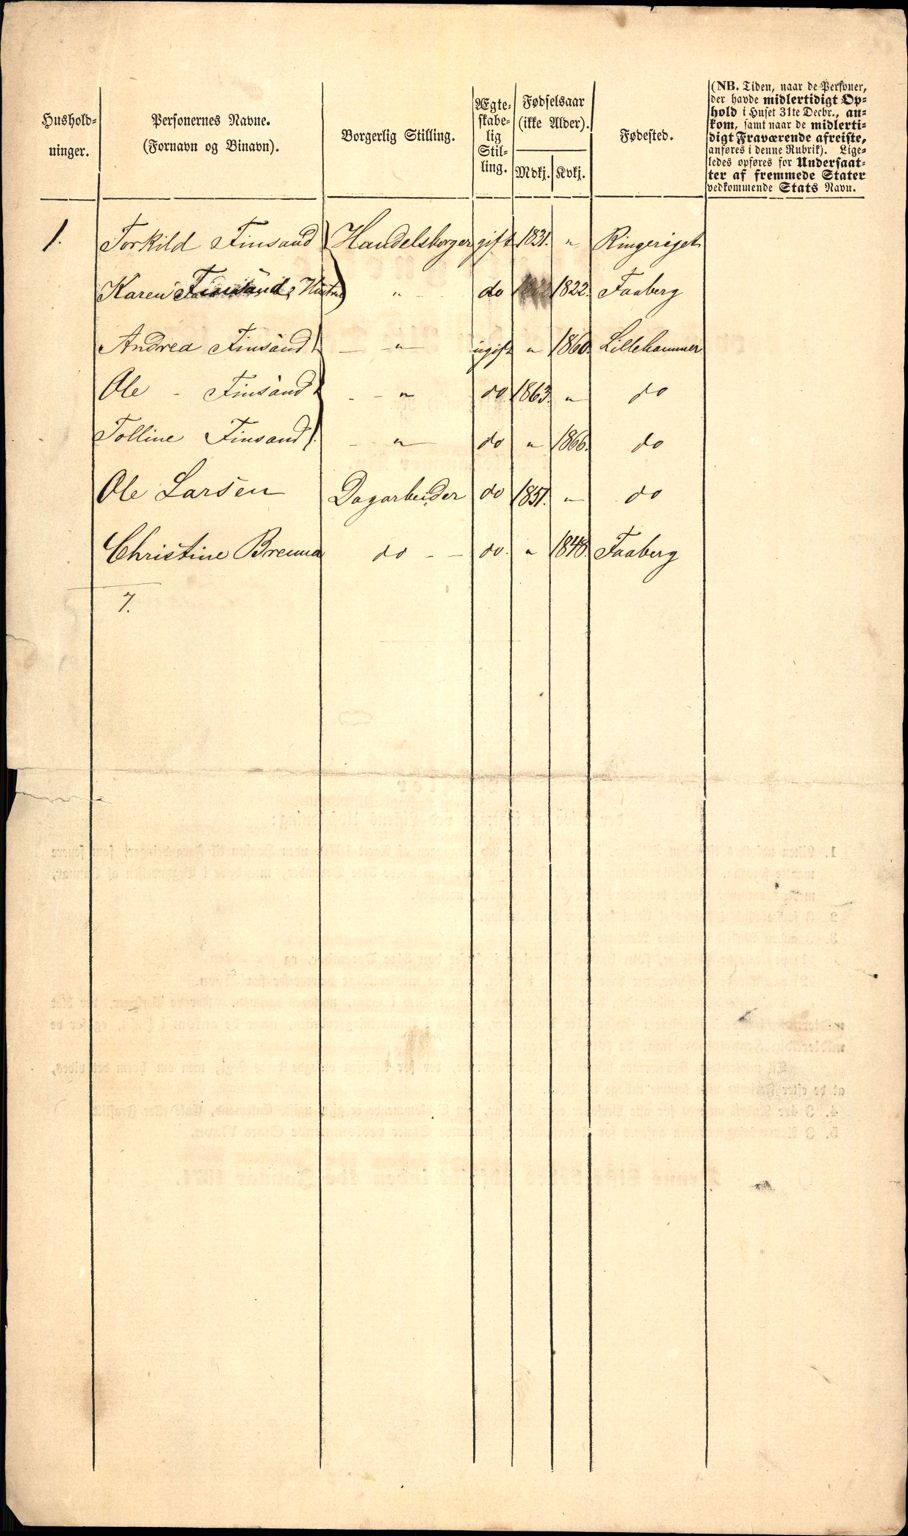 Hushold-
ninger.
Personernes Navne.
(Fornavn og Binavn).
Borgerlig Stilling.
Ægte-
skabe-
lig
Stil-
ling.
Fødselsaar
(ikke Alder).
Mdkj. Kvkj.
Fødested.
(NB. Tiden, naar de Personer,
der havde midlertidigt Op-
hold i Huset 31te Decbr., an-
kom, samt naar de midlerti-
digt Fraværende afreiste,
anføres i denne Rubrik). Lige-
ledes opføres for Undersaat-
ter af fremmede Stater
vedkommende Stats Navn.
1. Torkild Finsand Handelsborger gift 1831. " Ringeriget
Karen Finsand, Hustru " do 1822. Faaberg
Andrea Finsand — " — ugift " 1860. Lillehammer
Ole - Finsand - - " do 1863. " do
Tolline Finsand. - " — do " 1866. do
Ole Larsen Dagarbeider do 1851. " do
Christine Brenna do - — do. " 1848. Faaberg
7.